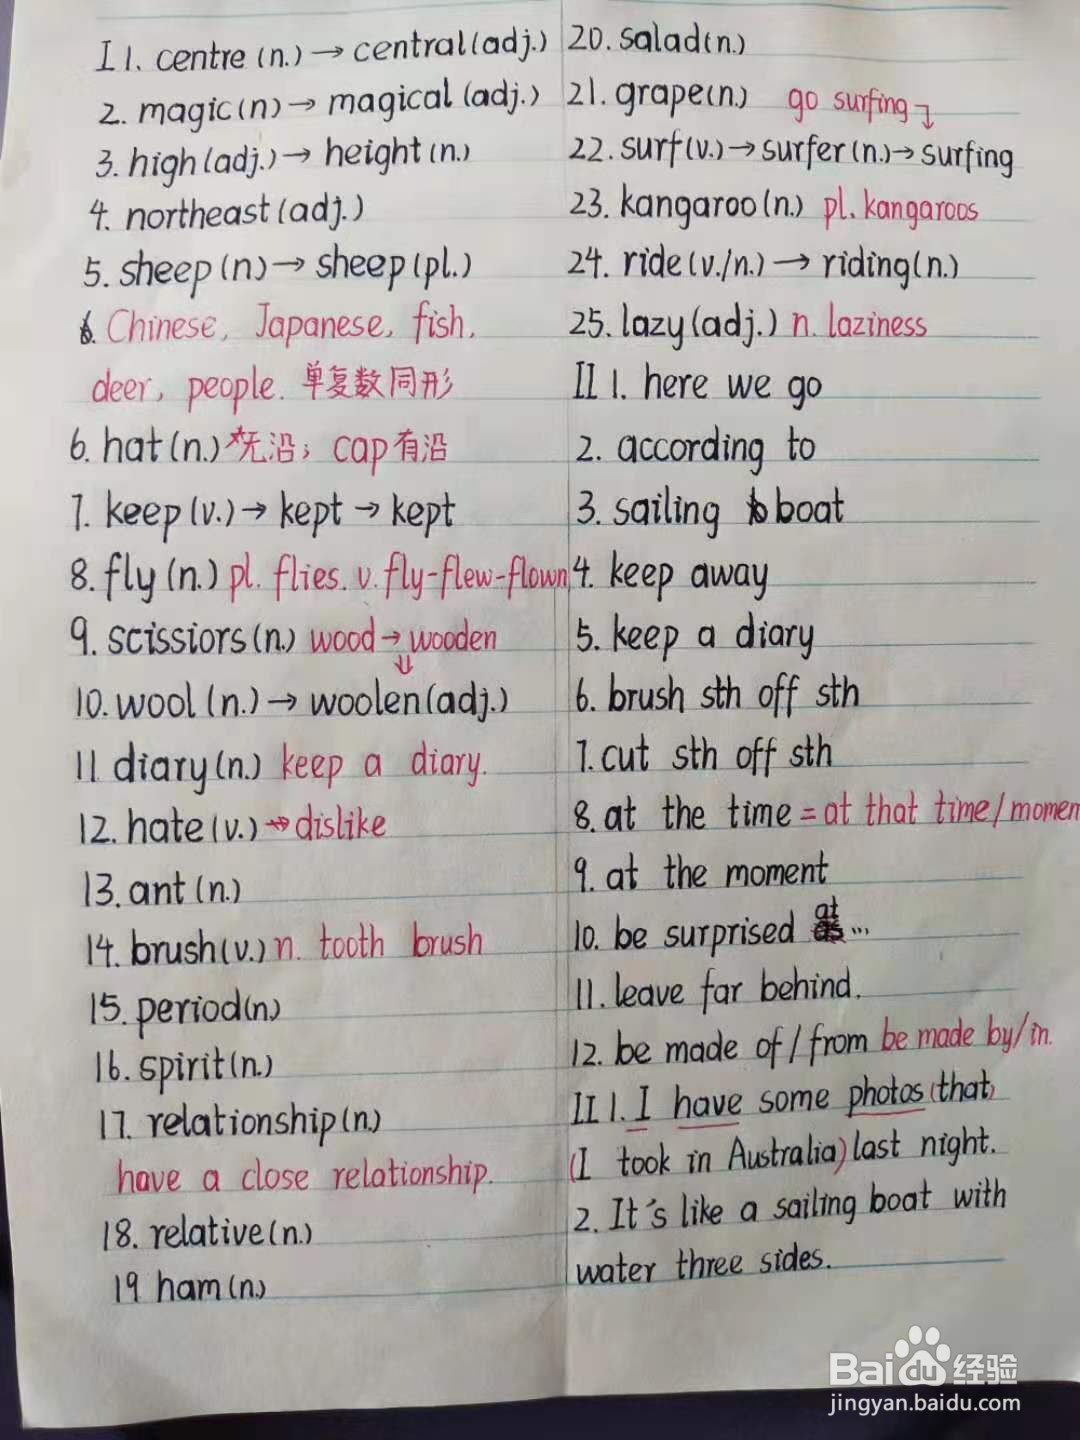 I 1. centre (n.) → central (adj.)
2. magic (n) → magical (adj.)
3. high (adj.) → height (n.)
4. northeast (adj.)
5. sheep (n) → sheep (pl.)
6. Chinese, Japanese, fish,
deer, people. 单复数同形
6. hat (n.) 无沿; cap 有沿
7. keep (v.) → kept → kept
8. fly (n.) pl. flies. v. fly-flew-flown
9. scissiors (n.) wood → wooden
10. wool (n.) → woolen (adj.)
11. diary (n.) keep a diary.
12. hate (v.) → dislike
13. ant (n.)
14. brush (v.) n. tooth brush
15. period (n)
16. spirit (n.)
17. relationship (n.)
have a close relationship.
18. relative (n.)
19 ham (n.)
20. salad (n.)
21. grape (n.) go surfing
22. surf (v.) → surfer (n.) → surfing
23. kangaroo (n.) pl. kangaroos
24. ride (v./n.) → riding (n.)
25. lazy (adj.) n. laziness
II 1. here we go
2. according to
3. sailing boat
4. keep away
5. keep a diary
6. brush sth off sth
7. cut sth off sth
8. at the time = at that time/momen
9. at the moment
10. be surprised at ...
11. leave far behind.
12. be made of / from be made by/in.
III 1. I have some photos (that)
(I took in Australia) last night.
2. It's like a sailing boat with
water three sides.
Baidu 经验
jingyan.baidu.com